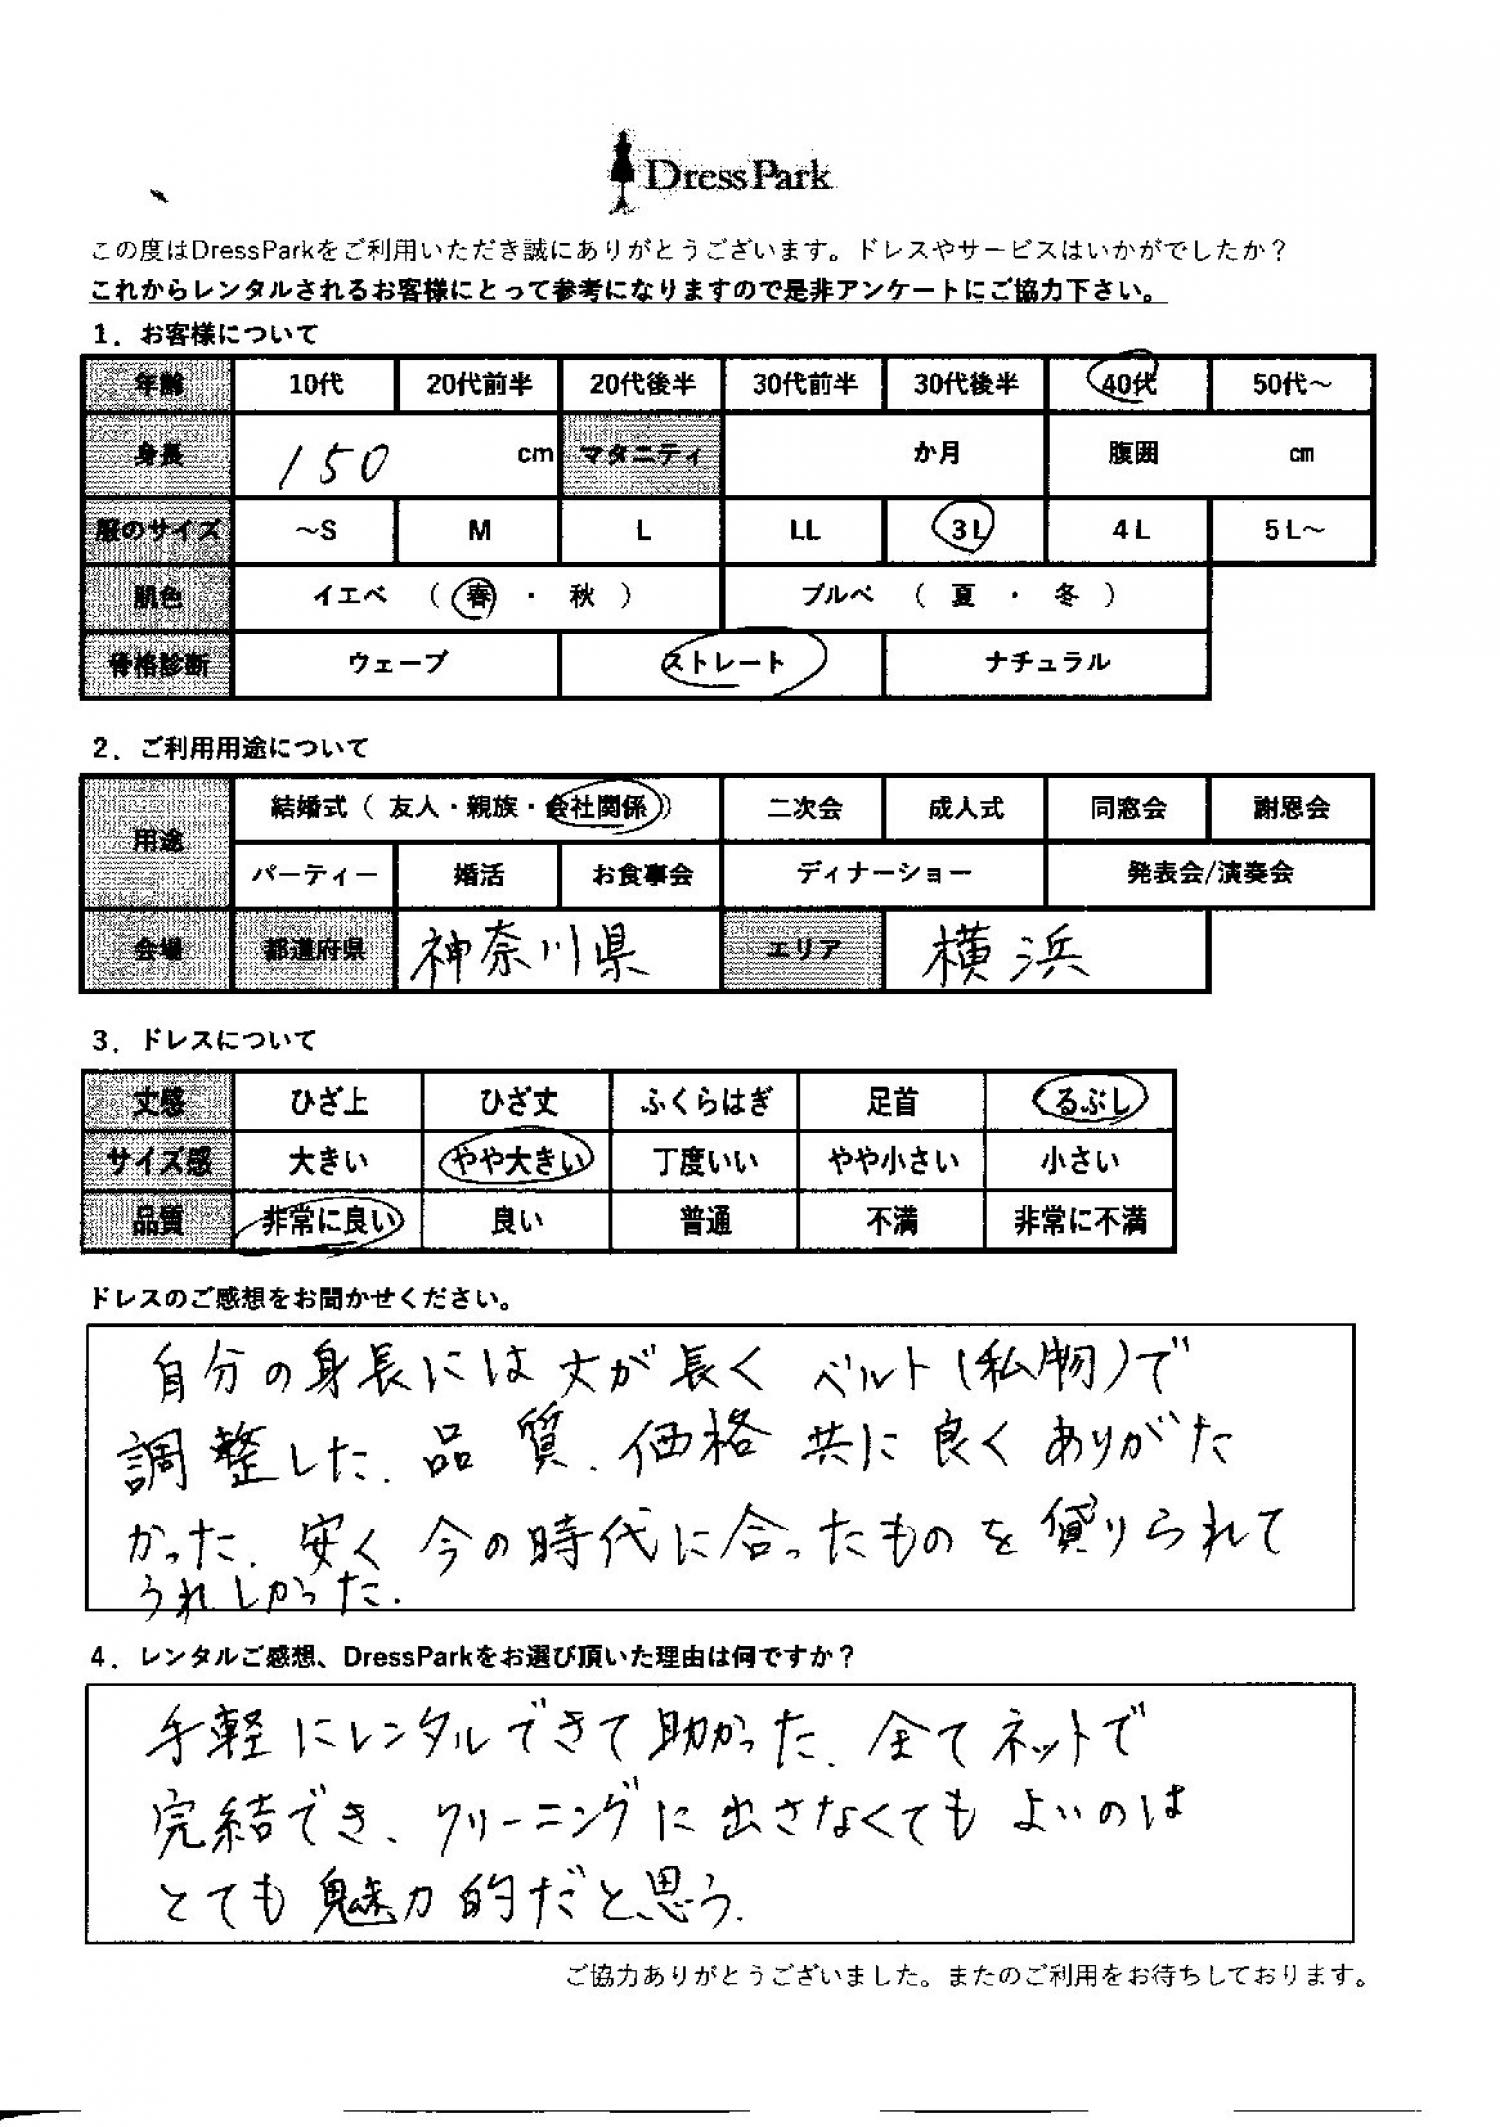 DressPark
この度はDressParkをご利用いただき誠にありがとうございます。ドレスやサービスはいかがでしたか？
これからレンタルされるお客様にとって参考になりますので是非アンケートにご協力下さい。
1．お客様について
年齢 10代 20代前半 20代後半 30代前半 30代後半 40代 50代～
身長 150 cm マタニティ か月 腹囲 cm
服のサイズ ～S M L LL 3L 4L 5L～
肌色 イエベ （ 春 ・ 秋 ） ブルベ （ 夏 ・ 冬 ）
骨格診断 ウェーブ ストレート ナチュラル
2．ご利用用途について
用途 結婚式（ 友人・親族・会社関係 ） 二次会 成人式 同窓会 謝恩会
パーティー 婚活 お食事会 ディナーショー 発表会/演奏会
会場 都道府県 神奈川県 エリア 横浜
3．ドレスについて
丈感 ひざ上 ひざ丈 ふくらはぎ 足首 くるぶし
サイズ感 大きい やや大きい 丁度いい やや小さい 小さい
品質 非常に良い 良い 普通 不満 非常に不満
ドレスのご感想をお聞かせください。
自分の身長には丈が長く ベルト(私物)で
調整した．品質．価格 共に良く ありがた
かった．安く 今の時代に合ったものを貸りられて
うれしかった．
4．レンタルご感想、DressParkをお選び頂いた理由は何ですか？
手軽にレンタルできて助かった．全てネットで
完結でき、クリーニングに出さなくてもよいのは
とても魅力的だと思う．
ご協力ありがとうございました。またのご利用をお待ちしております。